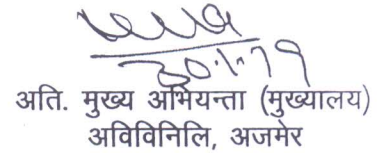 30.1.19
अति. मुख्य अभियन्ता (मुख्यालय)
अविविनिलि, अजमेर